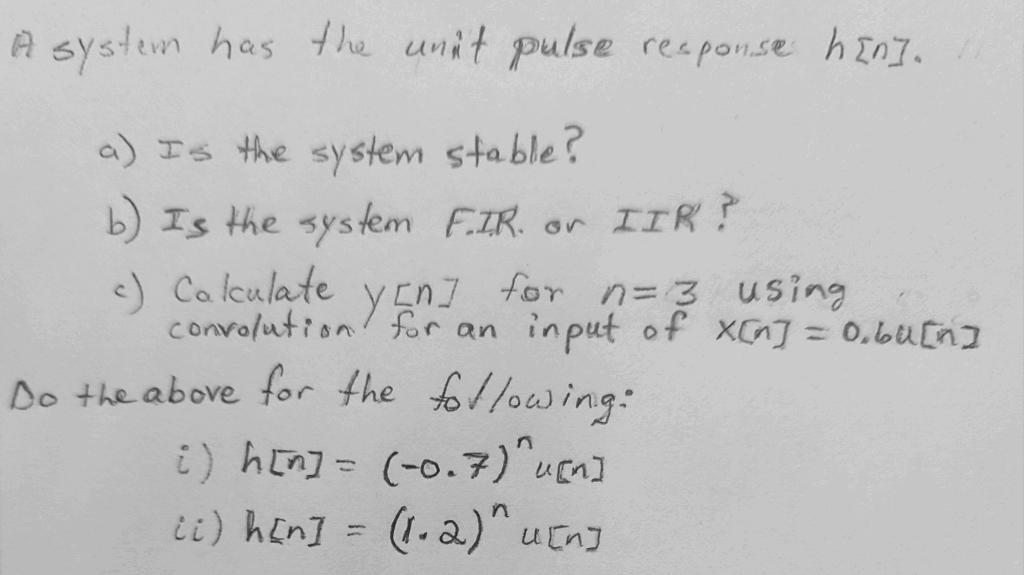 A system has the unit pulse response h[n].
a) Is the system stable?
b) Is the system F.I.R. or IIR?
c) Calculate y[n] for n=3 using
convolution for an input of x[n] = 0.6u[n]
Do the above for the following:
i) h[n] = (-0.7)ⁿu[n]
ii) h[n] = (1.2)ⁿ u[n]